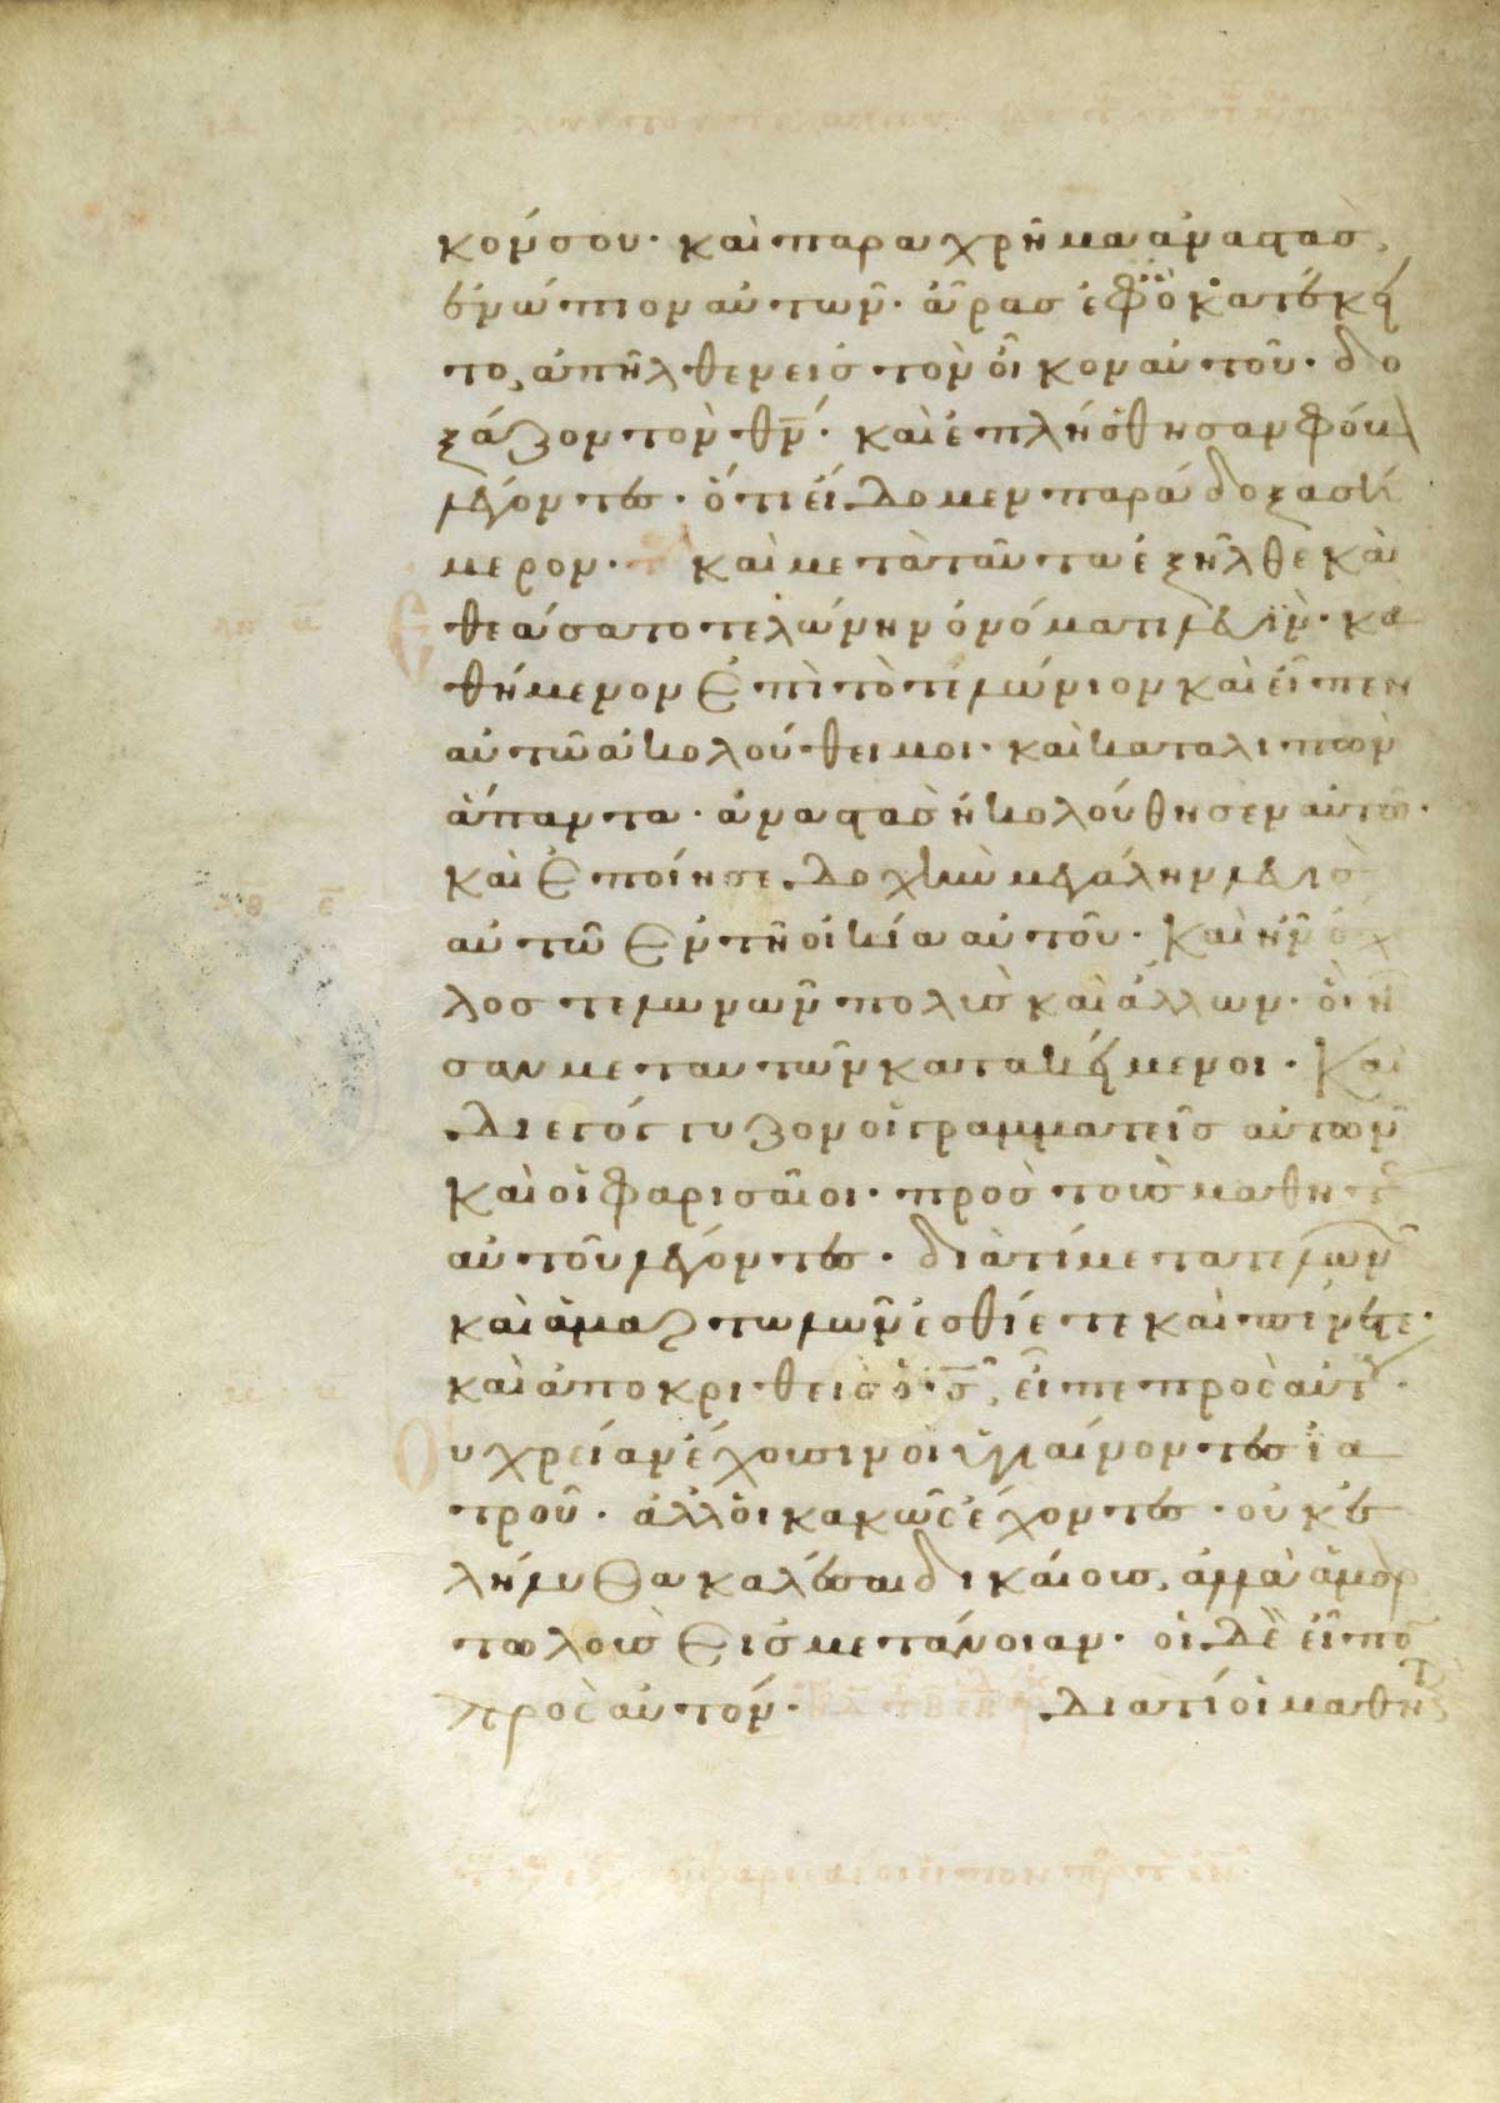 κόν σου· καὶ παραχρῆμα ἀναστὰσ,
ἐνώπιον αὐτῶν· ἄρασ ἐφ ὃ κατέκει
το, ἀπῆλθεν εἰσ τὸν οἶκον αὐτοῦ· δο
ξάζον τὸν θν̅· καὶ ἐπλήσθησαν φόβου
λέγοντεσ· ὅτι εἴδομεν παράδοξα σή
μερον· καὶ μετὰ ταῦτα ἐξῆλθε καὶ
ἐθεάσατο τελώνην ὀνόματι λευὶν· κα
θήμενον ἐπὶ τὸ τελώνιον καὶ εἶπεν
αὐτῶ ἀκολούθει μοι· καὶ καταλιπὼν
ἅπαντα· ἀναστὰσ ἠκολούθησεν αὐτῶ·
καὶ ἐποίησε δοχὴν μεγάλην λευὶσ
αὐτῶ ἐν τῆ οἰκία αὐτοῦ· καὶ ἦν ὄχ
λοσ τελωνῶν πολὺσ καὶ ἄλλων· οἳ ἦ
σαν μετ αυτῶν κατακείμενοι· Και
διεγόγγυζον οἱ γραμματεῖσ αὐτῶν
καὶ οἱ φαρισαῖοι· πρὸσ τοὺσ μαθητ
αὐτοῦ λέγοντεσ· διὰ τί μετα τελωνῶν
καὶ ἁμαρτωλῶν ἐσθίετε καὶ πίνετε·
καὶ ἀποκριθεὶσ ὁ ισ̅, εἶπε πρὸσ αὐτ·
Ου χρείαν ἔχουσιν οἱ ὑγιαίνοντεσ ἰα
τροῦ· ἀλλ οἱ κακῶσ ἔχοντεσ· οὐκ ἐ
λήλυθα καλέσαι δικαίουσ, ἀλλὰ ἁμαρ
τωλοὺσ εἰσ μετάνοιαν· οἱ δὲ εἶπο
πρὸσ αὐτόν· διατί οἱ μαθητ